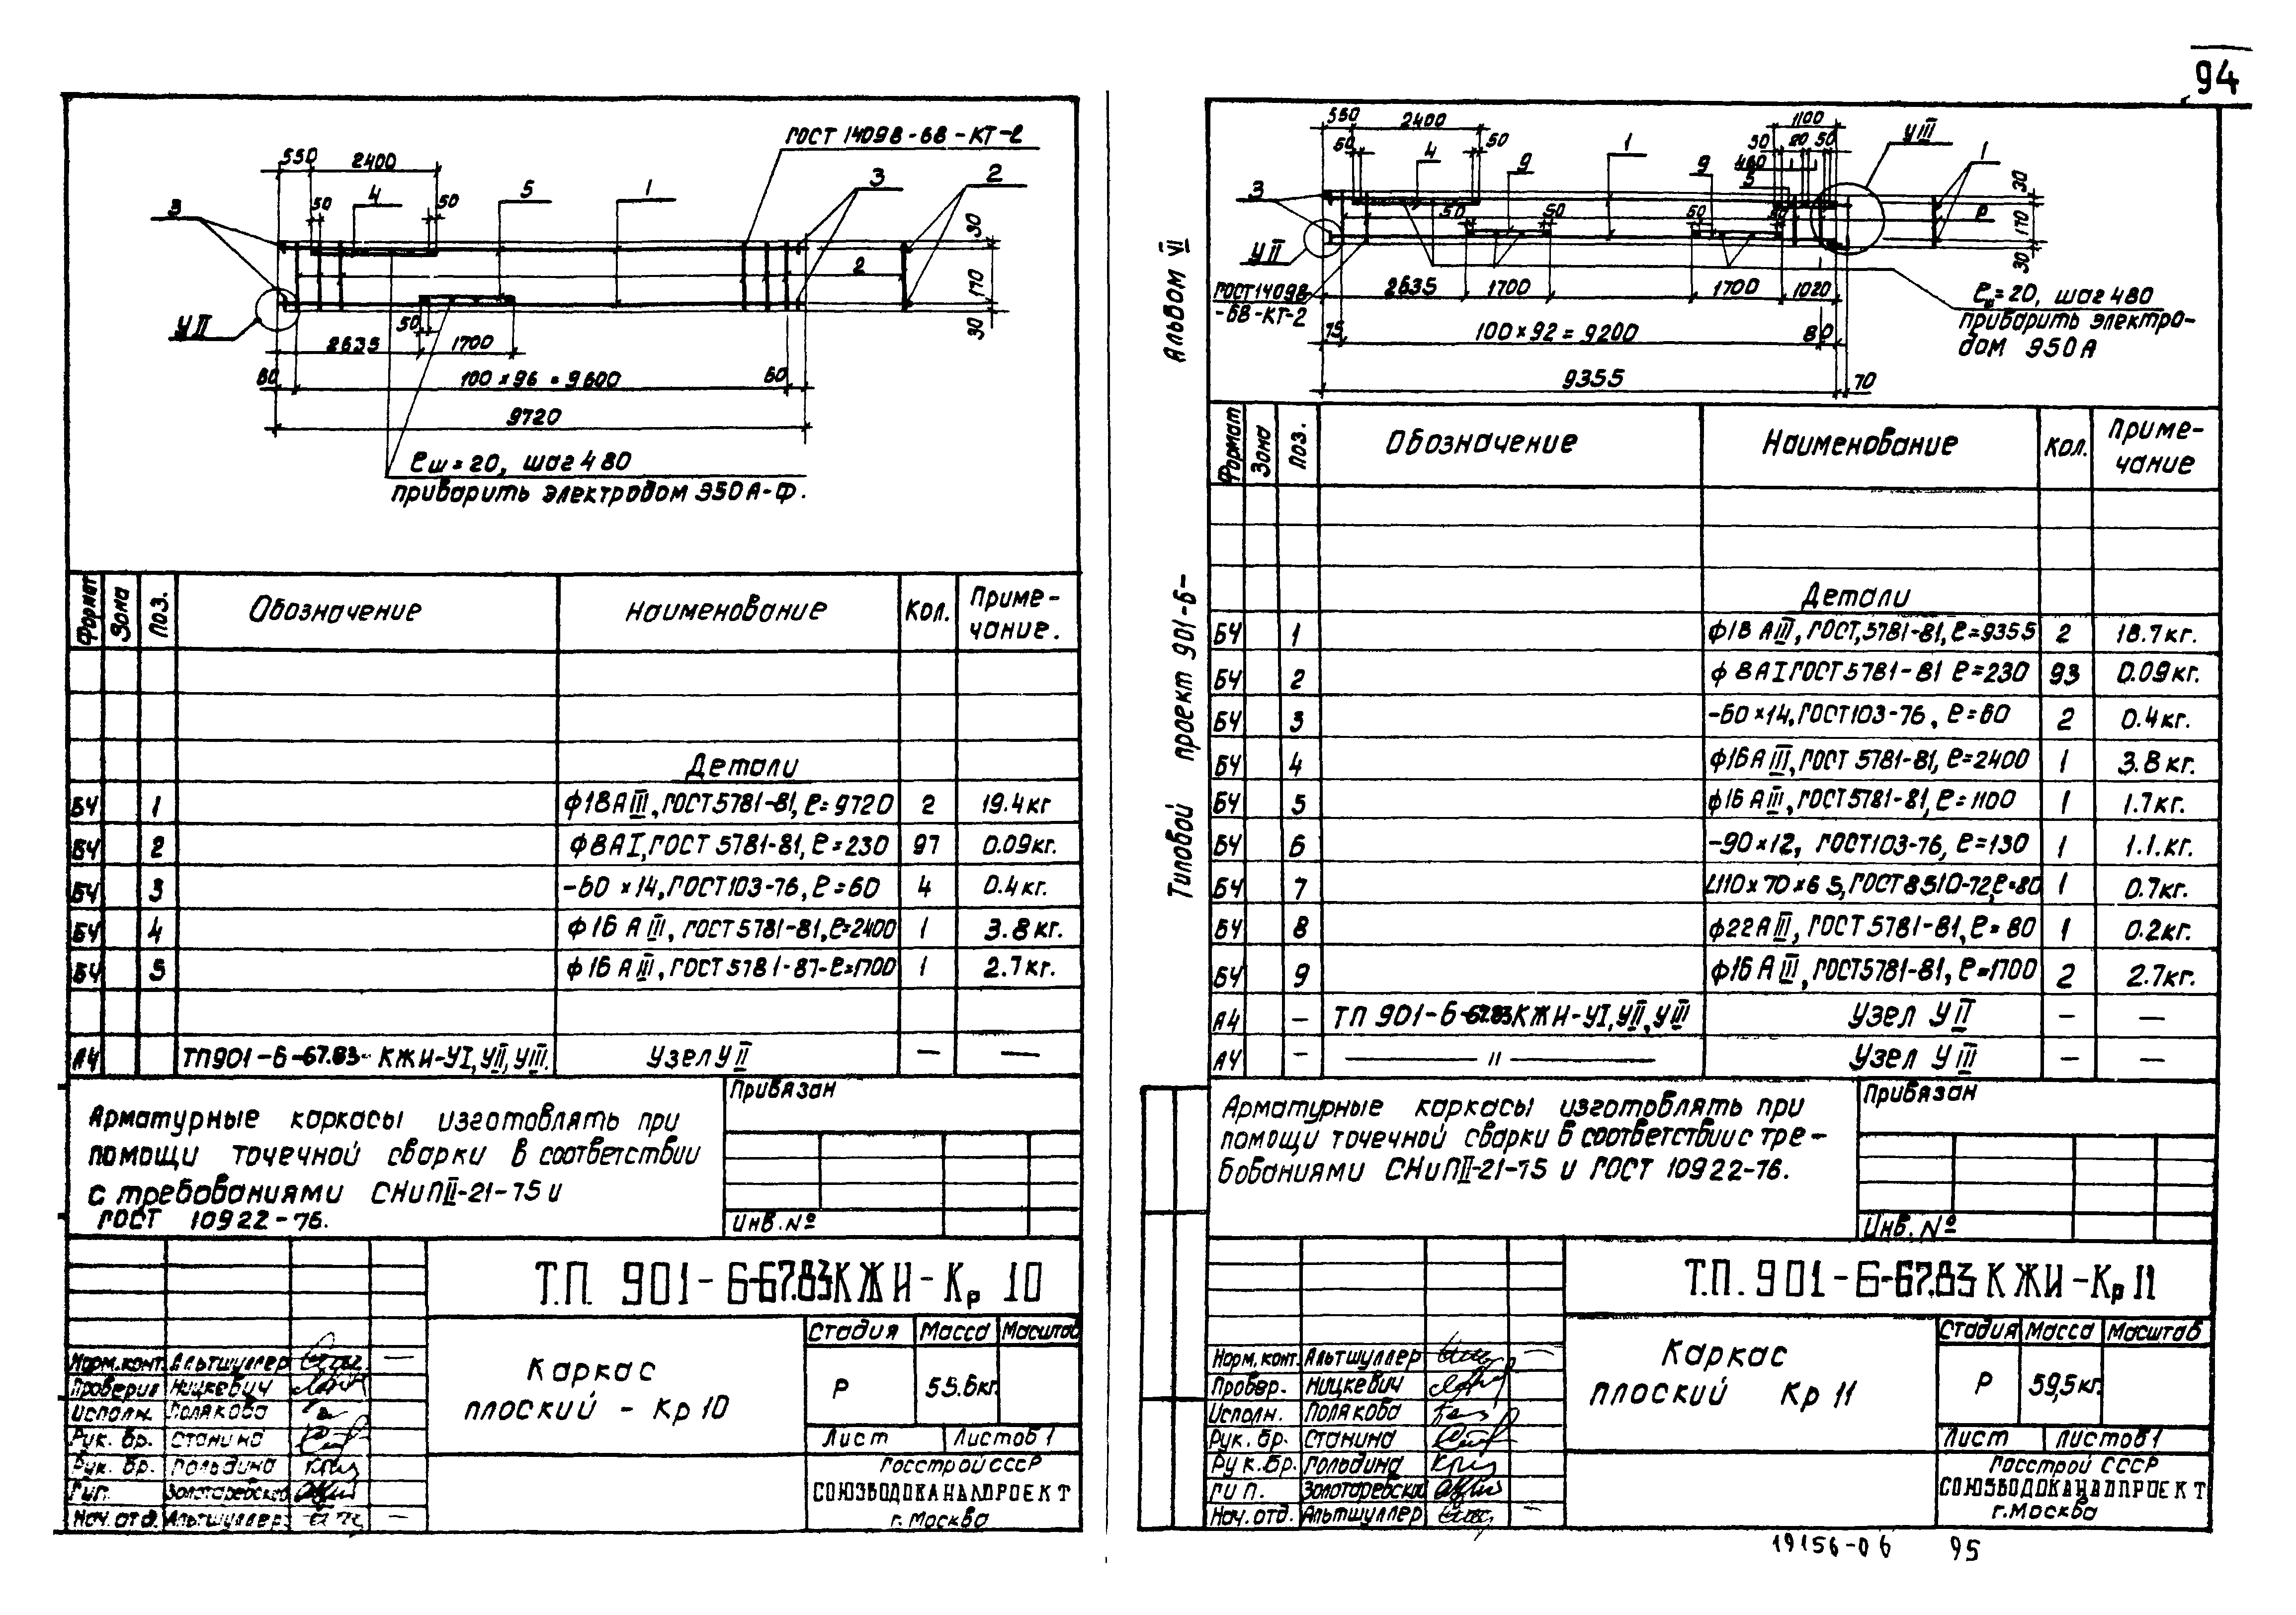 94
ГОСТ 14098-68-КТ-2
550
2400
50
4
50
5
1
3
2
3
30
170
30
2
УII
50
2635
1700
60
100 × 96 = 9600
60
9720
ℓш = 20, шаг 480
приварить электродом Э50А-Ф.
Формат
Зона
Поз.
Обозначение
Наименование
Кол.
Приме-
чание.
Детали
БЧ 1 ф18АIII, ГОСТ 5781-81, ℓ= 9720 2 19.4кг
БЧ 2 ф8АI, ГОСТ 5781-81, ℓ=230 97 0.09кг.
БЧ 3 -60 × 14, ГОСТ 103-76, ℓ=60 4 0.4кг.
БЧ 4 ф16 АIII, ГОСТ 5781-81, ℓ=2400 1 3.8кг.
БЧ 5 ф16 АIII, ГОСТ 5781-81-ℓ=1700 1 2.7кг.
А4 ТП901-6-67.83-КЖИ-УI, УII, УIII. Узел УII — —
Арматурные каркасы изготовлять при
помощи точечной сварки в соответствии
с требованиями СНиПII-21-75 и
ГОСТ 10922-76.
Привязан
Инв. №
Т.П. 901-6-67.83КЖИ-Кр 10
Каркас
плоский - Кр 10
Стадия Масса Масштаб
Р 55.6кг.
Лист Листов 1
Госстрой СССР
СОЮЗВОДОКАНАЛПРОЕКТ
г. Москва
Норм.конт. Альтшуллер —
Проверил Ницкевич
Исполн. Полякова
Рук. бр. Станина
Рук. бр. Гольдина
Гип. Золотаревская
Нач. отд. Альтшуллер —
Альбом VI
Типовой проект 901-6-
550
2400
50
4
50
9
1
9
1100
50
20
50
460
5
УIII
1
3
30
170
30
50
50
50
УII
2635
1700
1700
1020
ГОСТ 14098
-68-КТ-2
75
100 × 92 = 9200
80
9355
70
ℓш = 20, шаг 480
приварить электро-
дом Э50А
Формат
Зона
Поз.
Обозначение
Наименование
Кол.
Приме-
чание
Детали
БЧ 1 ф18 АIII, ГОСТ, 5781-81, ℓ=9355 2 18.7кг.
БЧ 2 ф 8АI ГОСТ 5781-81 ℓ=230 93 0.09кг.
БЧ 3 -60 × 14, ГОСТ 103-76, ℓ=60 2 0.4кг.
БЧ 4 ф16АIII, ГОСТ 5781-81, ℓ=2400 1 3.8кг.
БЧ 5 ф16 АIII, ГОСТ 5781-81, ℓ=1100 1 1.7кг.
БЧ 6 -90 × 12, ГОСТ 103-76, ℓ=130 1 1.1.кг.
БЧ 7 L110 × 70 × 6 5, ГОСТ 8510-72, ℓ=80 1 0.7кг.
БЧ 8 ф22АIII, ГОСТ 5781-81, ℓ=80 1 0.2кг.
БЧ 9 ф16 АIII, ГОСТ 5781-81, ℓ=1700 2 2.7кг.
А4 — ТП 901-6-67.83 КЖИ-УI, УII, УIII Узел УII — —
А4 — — " — Узел УIII — —
Арматурные каркасы изготовлять при
помощи точечной сварки в соответствии с тре-
бованиями СНиПII-21-75 и ГОСТ 10922-76.
Привязан
Инв. №
Т.П. 901-6-67.83 КЖИ-Кр 11
Каркас
плоский Кр 11
Стадия Масса Масштаб
Р 59,5кг.
Лист Листов 1
Госстрой СССР
СОЮЗВОДОКАНАЛПРОЕКТ
г. Москва
Норм. конт. Альтшуллер —
Провер. Ницкевич
Исполн. Полякова
Рук. бр. Станина
Рук. бр. Гольдина
ГИП. Золотаревская
Нач. отд. Альтшуллер —
19156-06 95